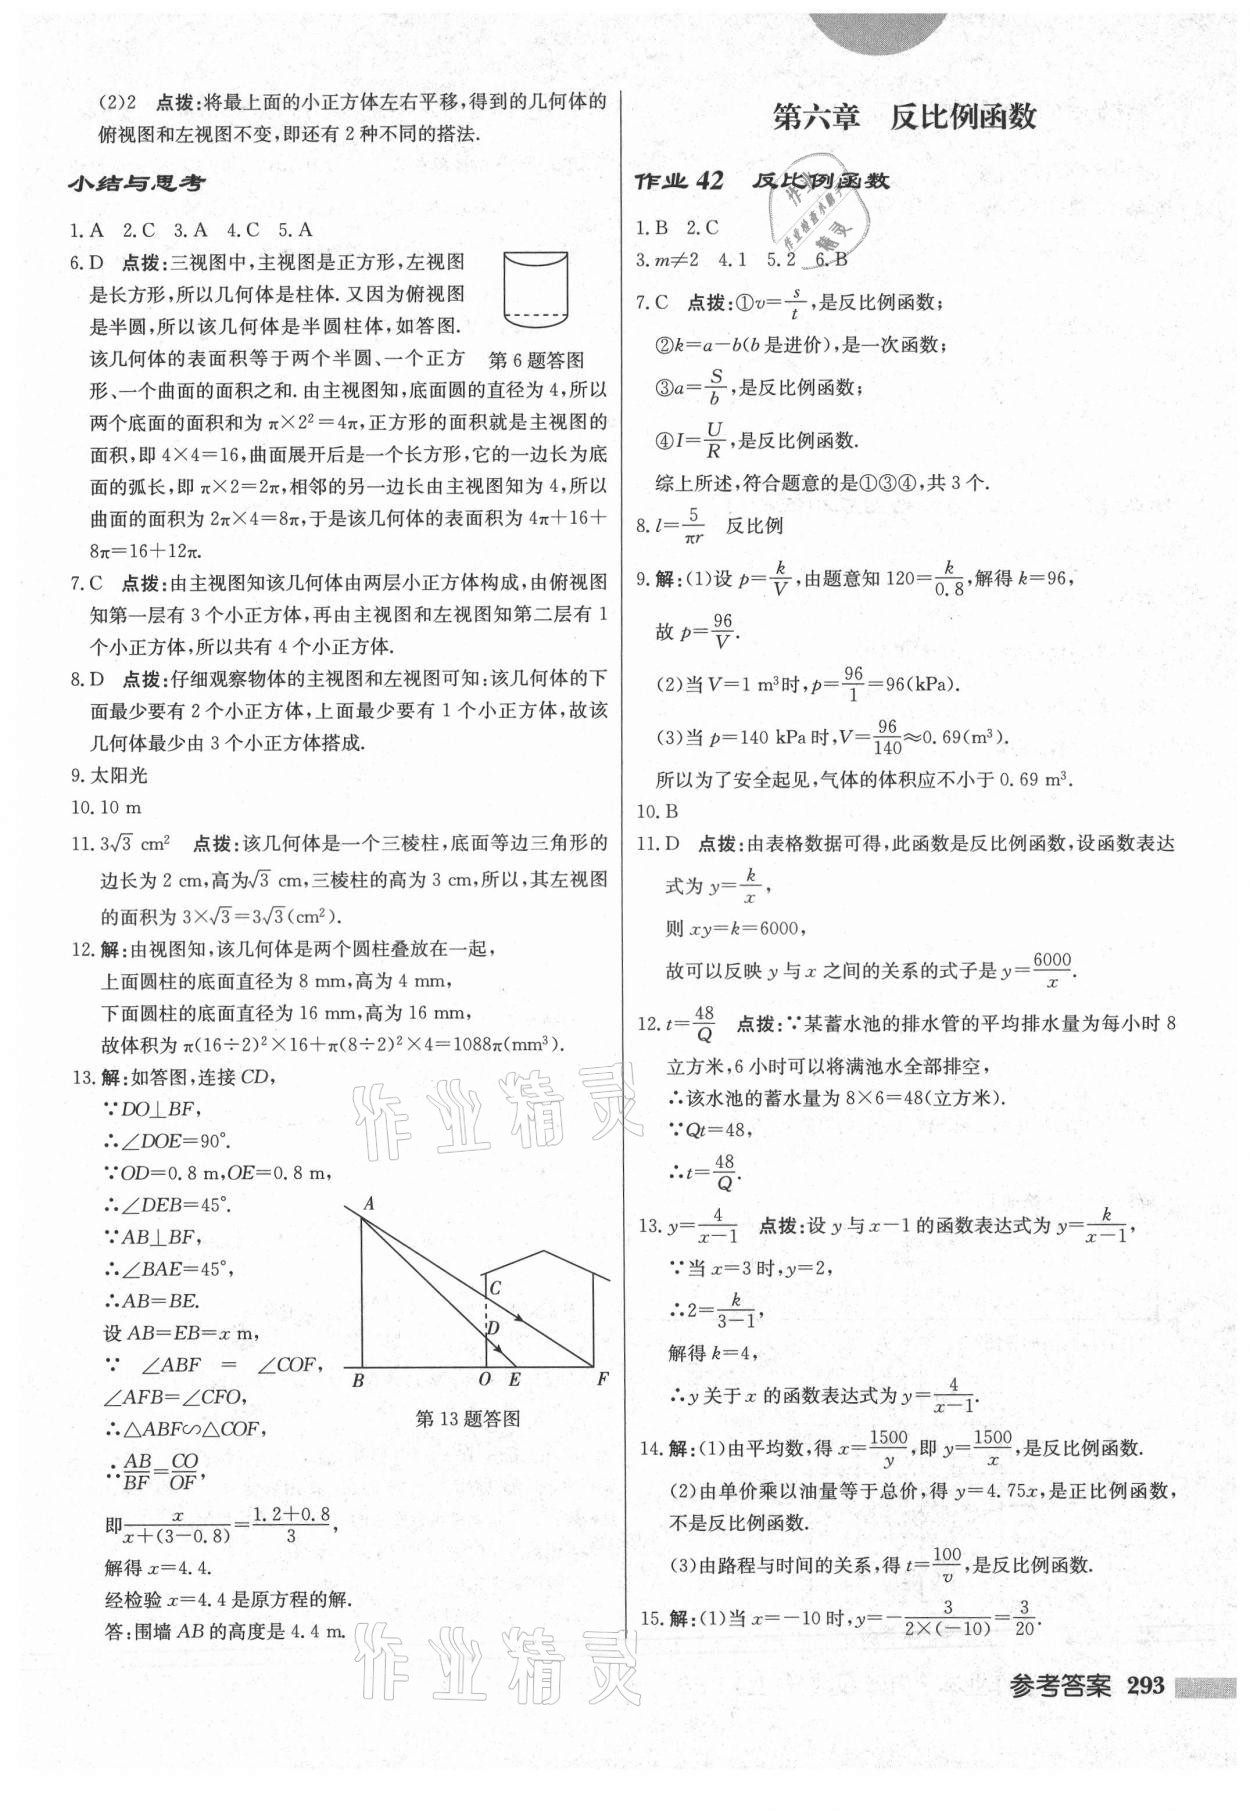 (2)2　点拨:将最上面的小正方体左右平移,得到的几何体的
俯视图和左视图不变,即还有 2 种不同的搭法.
小结与思考
1. A　2. C　3. A　4. C　5. A
6. D　点拨:三视图中,主视图是正方形,左视图
是长方形,所以几何体是柱体. 又因为俯视图
是半圆,所以该几何体是半圆柱体,如答图.
该几何体的表面积等于两个半圆、一个正方
第 6 题答图
形、一个曲面的面积之和. 由主视图知,底面圆的直径为 4,所以
两个底面的面积和为 π×2²=4π,正方形的面积就是主视图的
面积,即 4×4=16,曲面展开后是一个长方形,它的一边长为底
面的弧长,即 π×2=2π,相邻的另一边长由主视图知为 4,所以
曲面的面积为 2π×4=8π,于是该几何体的表面积为 4π+16+
8π=16+12π.
7. C　点拨:由主视图知该几何体由两层小正方体构成,由俯视图
知第一层有 3 个小正方体,再由主视图和左视图知第二层有 1
个小正方体,所以共有 4 个小正方体.
8. D　点拨:仔细观察物体的主视图和左视图可知:该几何体的下
面最少要有 2 个小正方体,上面最少要有 1 个小正方体,故该
几何体最少由 3 个小正方体搭成.
9. 太阳光
10. 10 m
11. 3√3 cm²　点拨:该几何体是一个三棱柱,底面等边三角形的
边长为 2 cm,高为√3 cm,三棱柱的高为 3 cm,所以,其左视图
的面积为 3×√3=3√3(cm²).
12. 解:由视图知,该几何体是两个圆柱叠放在一起,
上面圆柱的底面直径为 8 mm,高为 4 mm,
下面圆柱的底面直径为 16 mm,高为 16 mm,
故体积为 π(16÷2)²×16+π(8÷2)²×4=1088π(mm³).
13. 解:如答图,连接 CD,
∵DO⊥BF,
∴∠DOE=90°.
∵OD=0.8 m,OE=0.8 m,
∴∠DEB=45°.
∵AB⊥BF,
∴∠BAE=45°,
∴AB=BE.
设 AB=EB=x m,
∵ ∠ABF = ∠COF,
∠AFB=∠CFO,
∴△ABF∽△COF,
∴AB/BF=CO/OF,
即x/(x+(3-0.8))=(1.2+0.8)/3,
解得 x=4.4.
经检验 x=4.4 是原方程的解.
答:围墙 AB 的高度是 4.4 m.
A
C
D
B
O
E
F
第 13 题答图
第六章　反比例函数
作业 42　反比例函数
1. B　2. C
3. m≠2　4. 1　5. 2　6. B
7. C　点拨:①v=s/t,是反比例函数;
②k=a-b(b 是进价),是一次函数;
③a=S/b,是反比例函数;
④I=U/R,是反比例函数.
综上所述,符合题意的是①③④,共 3 个.
8. l=5/πr　反比例
9. 解:(1)设 p=k/V,由题意知 120=k/0.8,解得 k=96,
故 p=96/V.
(2)当 V=1 m³时,p=96/1=96(kPa).
(3)当 p=140 kPa 时,V=96/140≈0.69(m³).
所以为了安全起见,气体的体积应不小于 0.69 m³.
10. B
11. D　点拨:由表格数据可得,此函数是反比例函数,设函数表达
式为 y=k/x,
则 xy=k=6000,
故可以反映 y 与 x 之间的关系的式子是 y=6000/x.
12. t=48/Q　点拨:∵某蓄水池的排水管的平均排水量为每小时 8
立方米,6 小时可以将满池水全部排空,
∴该水池的蓄水量为 8×6=48(立方米).
∵Qt=48,
∴t=48/Q.
13. y=4/(x-1)　点拨:设 y 与 x-1 的函数表达式为 y=k/(x-1),
∵当 x=3 时,y=2,
∴2=k/(3-1),
解得 k=4,
∴y 关于 x 的函数表达式为 y=4/(x-1).
14. 解:(1)由平均数,得 x=1500/y,即 y=1500/x,是反比例函数.
(2)由单价乘以油量等于总价,得 y=4.75x,是正比例函数,
不是反比例函数.
(3)由路程与时间的关系,得 t=100/v,是反比例函数.
15. 解:(1)当 x=-10 时,y=-3/(2×(-10))=3/20.
参考答案 293
作业精灵
作业精灵
作业
作业检查小助手
精灵